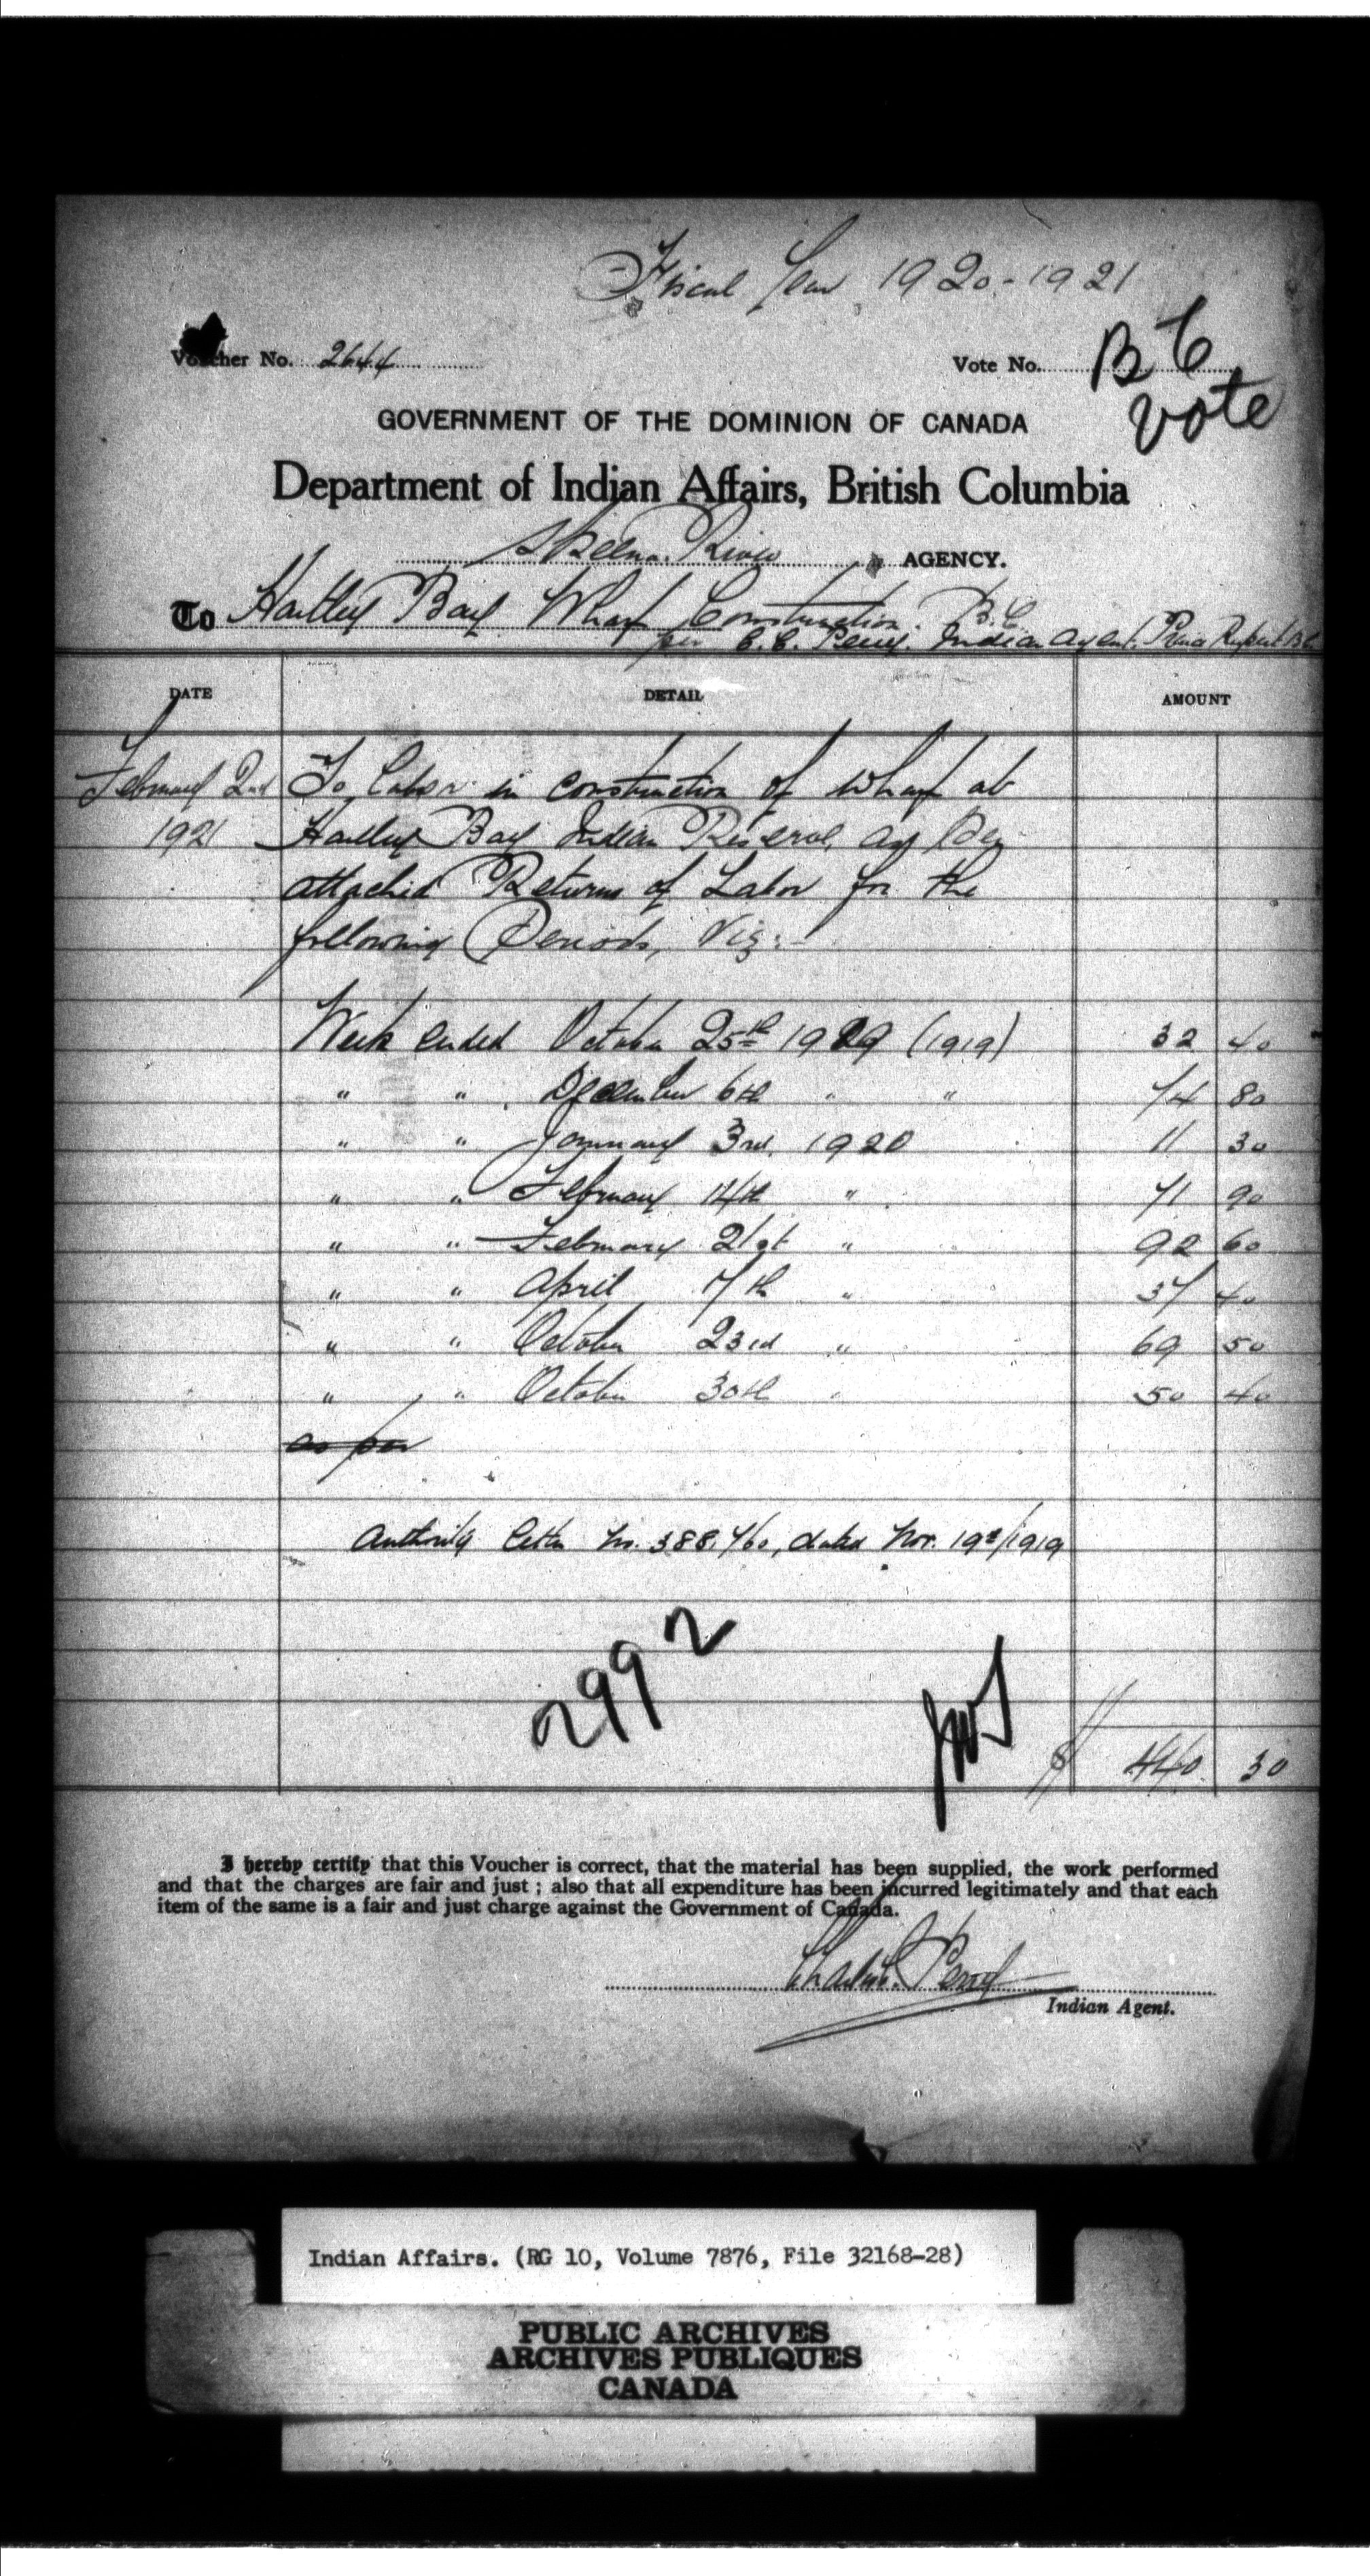 Fiscal Year 1920-1921
Voucher No. 2644
Vote No. B C
vote
GOVERNMENT OF THE DOMINION OF CANADA
Department of Indian Affairs, British Columbia
Skeena River AGENCY.
To Hartley Bay Wharf Construction. B.C.
per C. C. Perry. Indian Agent. Prince Rupert B.C.
DATE DETAIL AMOUNT
February 2nd To Labor in construction of wharf at
1921 Hartley Bay Indian Reserve, as per
attached Returns of Labor for the
following Periods, Viz:-
Week ended October 25th 1919 (1919) 32 40
" " December 6th " " 74 80
" " January 3rd. 1920 11 30
" " February 14th " 71 90
" " February 21st " 92 60
" " April 17th " 37 40
" " October 23rd " 69 50
" " October 30th " 50 40
as per
Authority letter No. 388,760, dated Nov. 19th/1919
2992
$ 440 30
I hereby certify that this Voucher is correct, that the material has been supplied, the work performed
and that the charges are fair and just ; also that all expenditure has been incurred legitimately and that each
item of the same is a fair and just charge against the Government of Canada.
Charles C. Perry
Indian Agent.
Indian Affairs. (RG 10, Volume 7876, File 32168-28)
PUBLIC ARCHIVES
ARCHIVES PUBLIQUES
CANADA